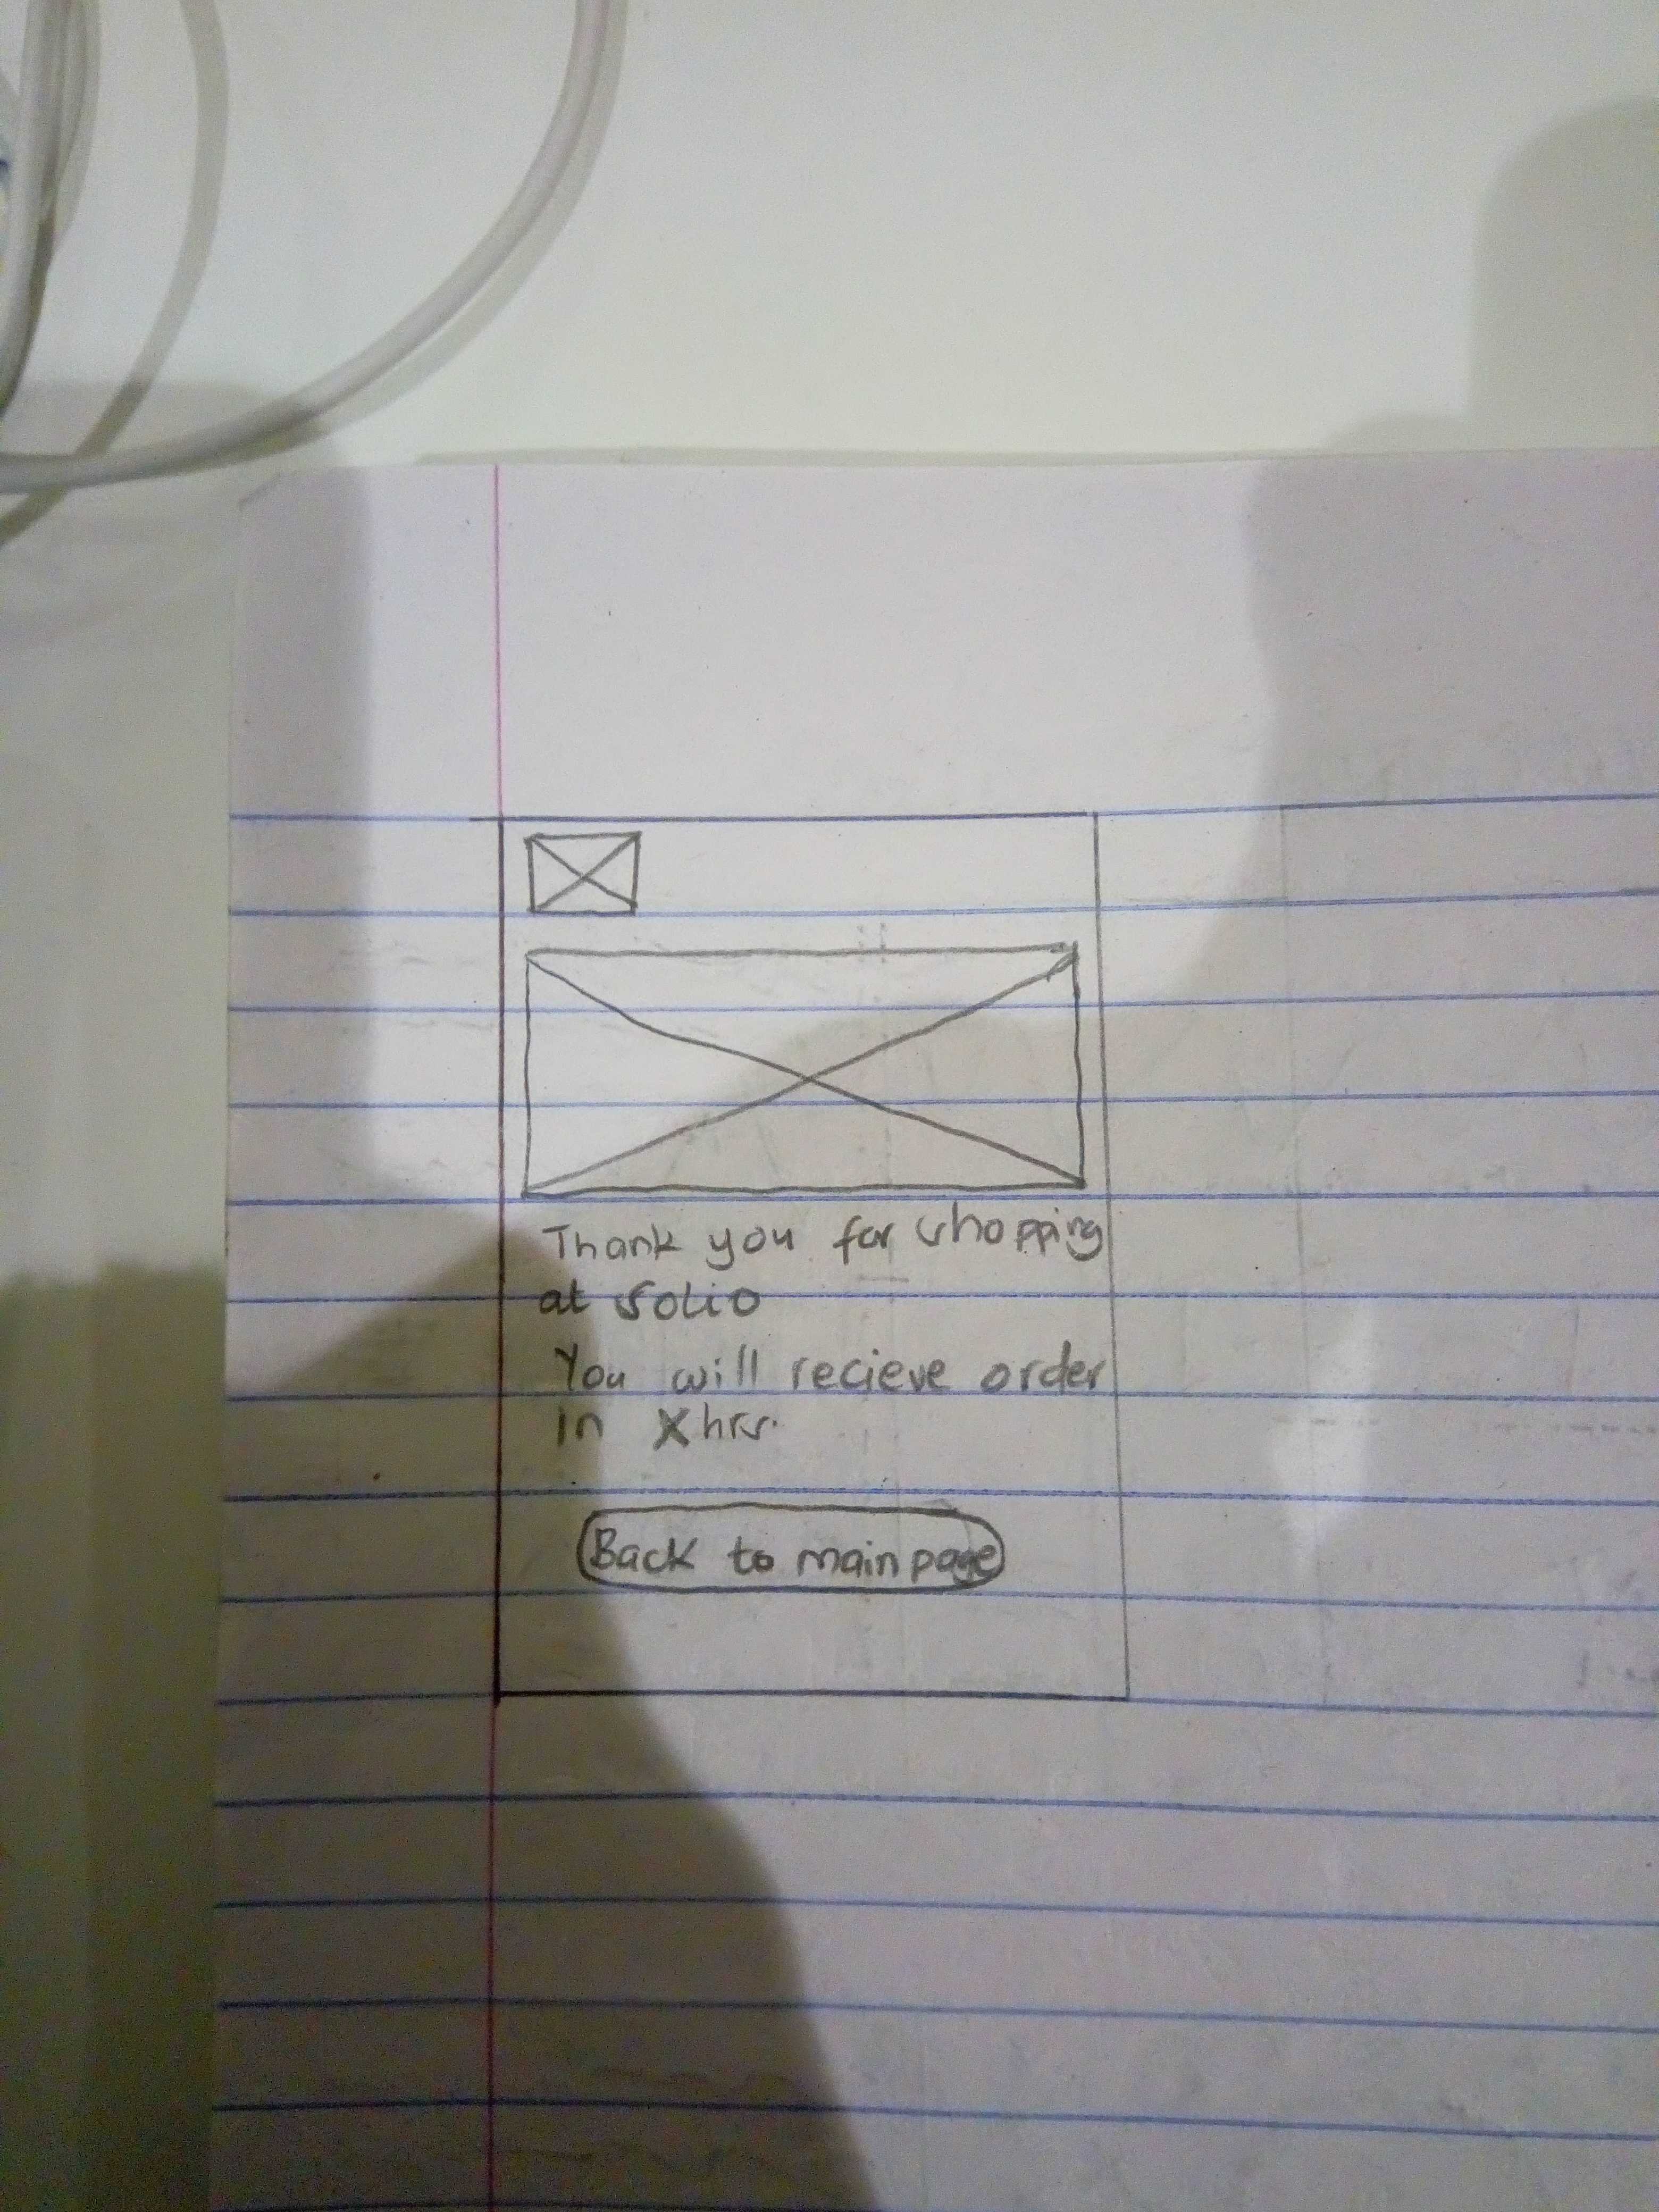 Thank you for shopping
at Solio
You will recieve order
in X hrs.
Back to main page